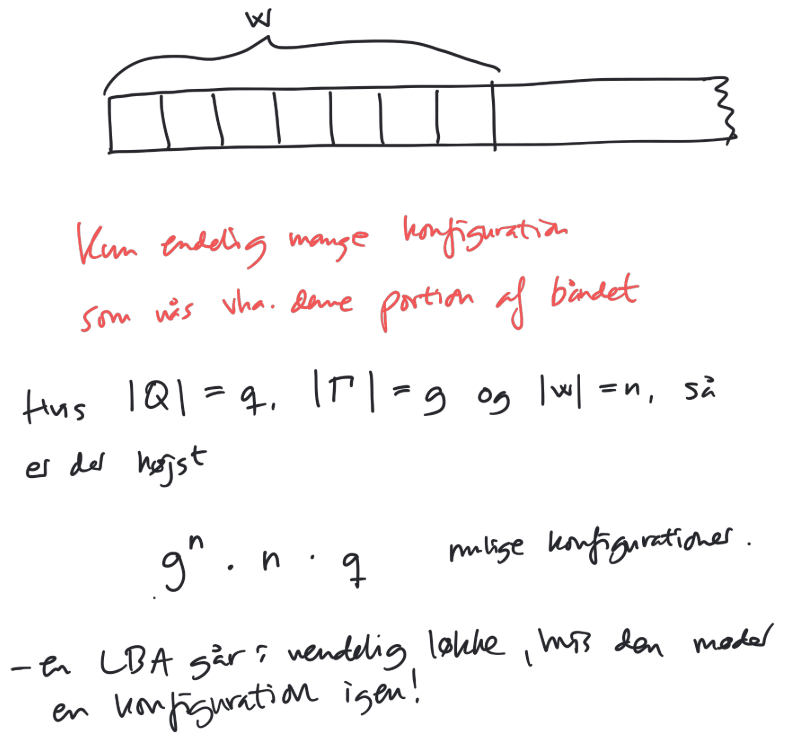 w
Kun endelig mange konfiguration
som nås vha. denne portion af båndet
Hvis |Q| = q, |Γ| = g og |w| = n, så
er der højst
gⁿ · n · q mulige konfigurationer.
- en LBA går i uendelig løkke, hvis den møder
en konfiguration igen!